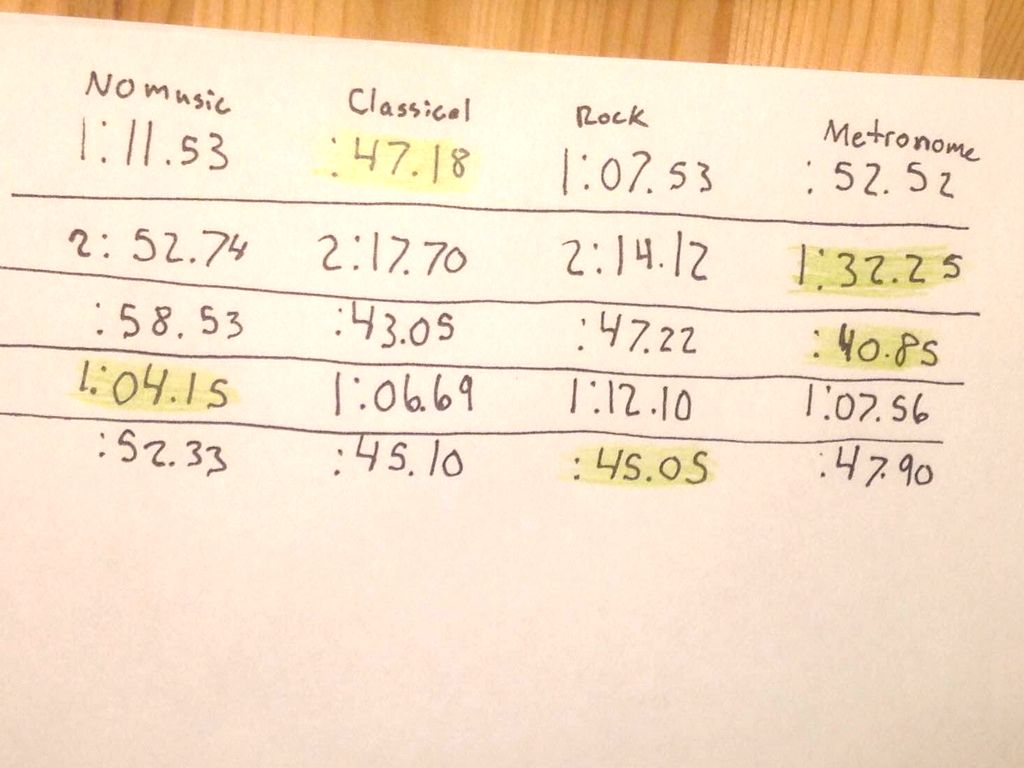 No music Classical Rock Metronome
1:11.53 :47.18 1:07.53 :52.52
2:52.74 2:17.70 2:14.12 1:32.25
:58.53 :43.05 :47.22 :40.85
1:04.15 1:06.69 1:12.10 1:07.56
:52.33 :45.10 :45.05 :47.90